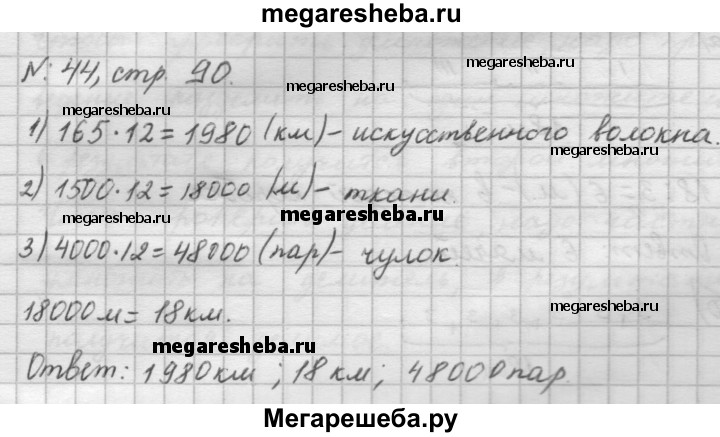 megaresheba.ru
№ 44, стр. 90.
megaresheba.ru
megaresheba.ru
1) 165·12=1980 (км)- искусственного волокна.
megaresheba.ru
2) 1500·12=18000 (м)- ткани.
megaresheba.ru
megaresheba.ru
3) 4000·12=48000 (пар)- чулок.
18000м=18км.
megaresheba.ru
megaresheba.ru
Ответ: 1980км; 18км; 48000пар.
Мегарешеба.ру